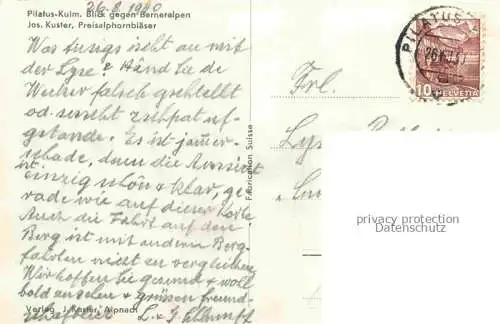 26.8.1940
Pilatus-Kulm. Blick gegen Berneralpen
Jos. Kuster, Preisalphornbläser
Was isch au mit
der Lyse? Händ Sie de
Wecker falsch gschtellt
od. z'spät uf-
gstande. Es ist jammer-
schade, denn die Aussicht
ist einzig schön & klar, ge-
rade wie auf dieser Karte
Auch die Fahrt auf den
Berg ist mit andern Berg-
fahrten nicht zu vergleichen
Wir hoffen Sie gesund & wohl
bald zu sehen & grüssen freund-
schaftlich L. & G.
Verlag J. Kuster, Alpnach
Fabrication Suisse
Frl.
Lys
PILATUS-K
10 HELVETIA
privacy protection
Datenschutz